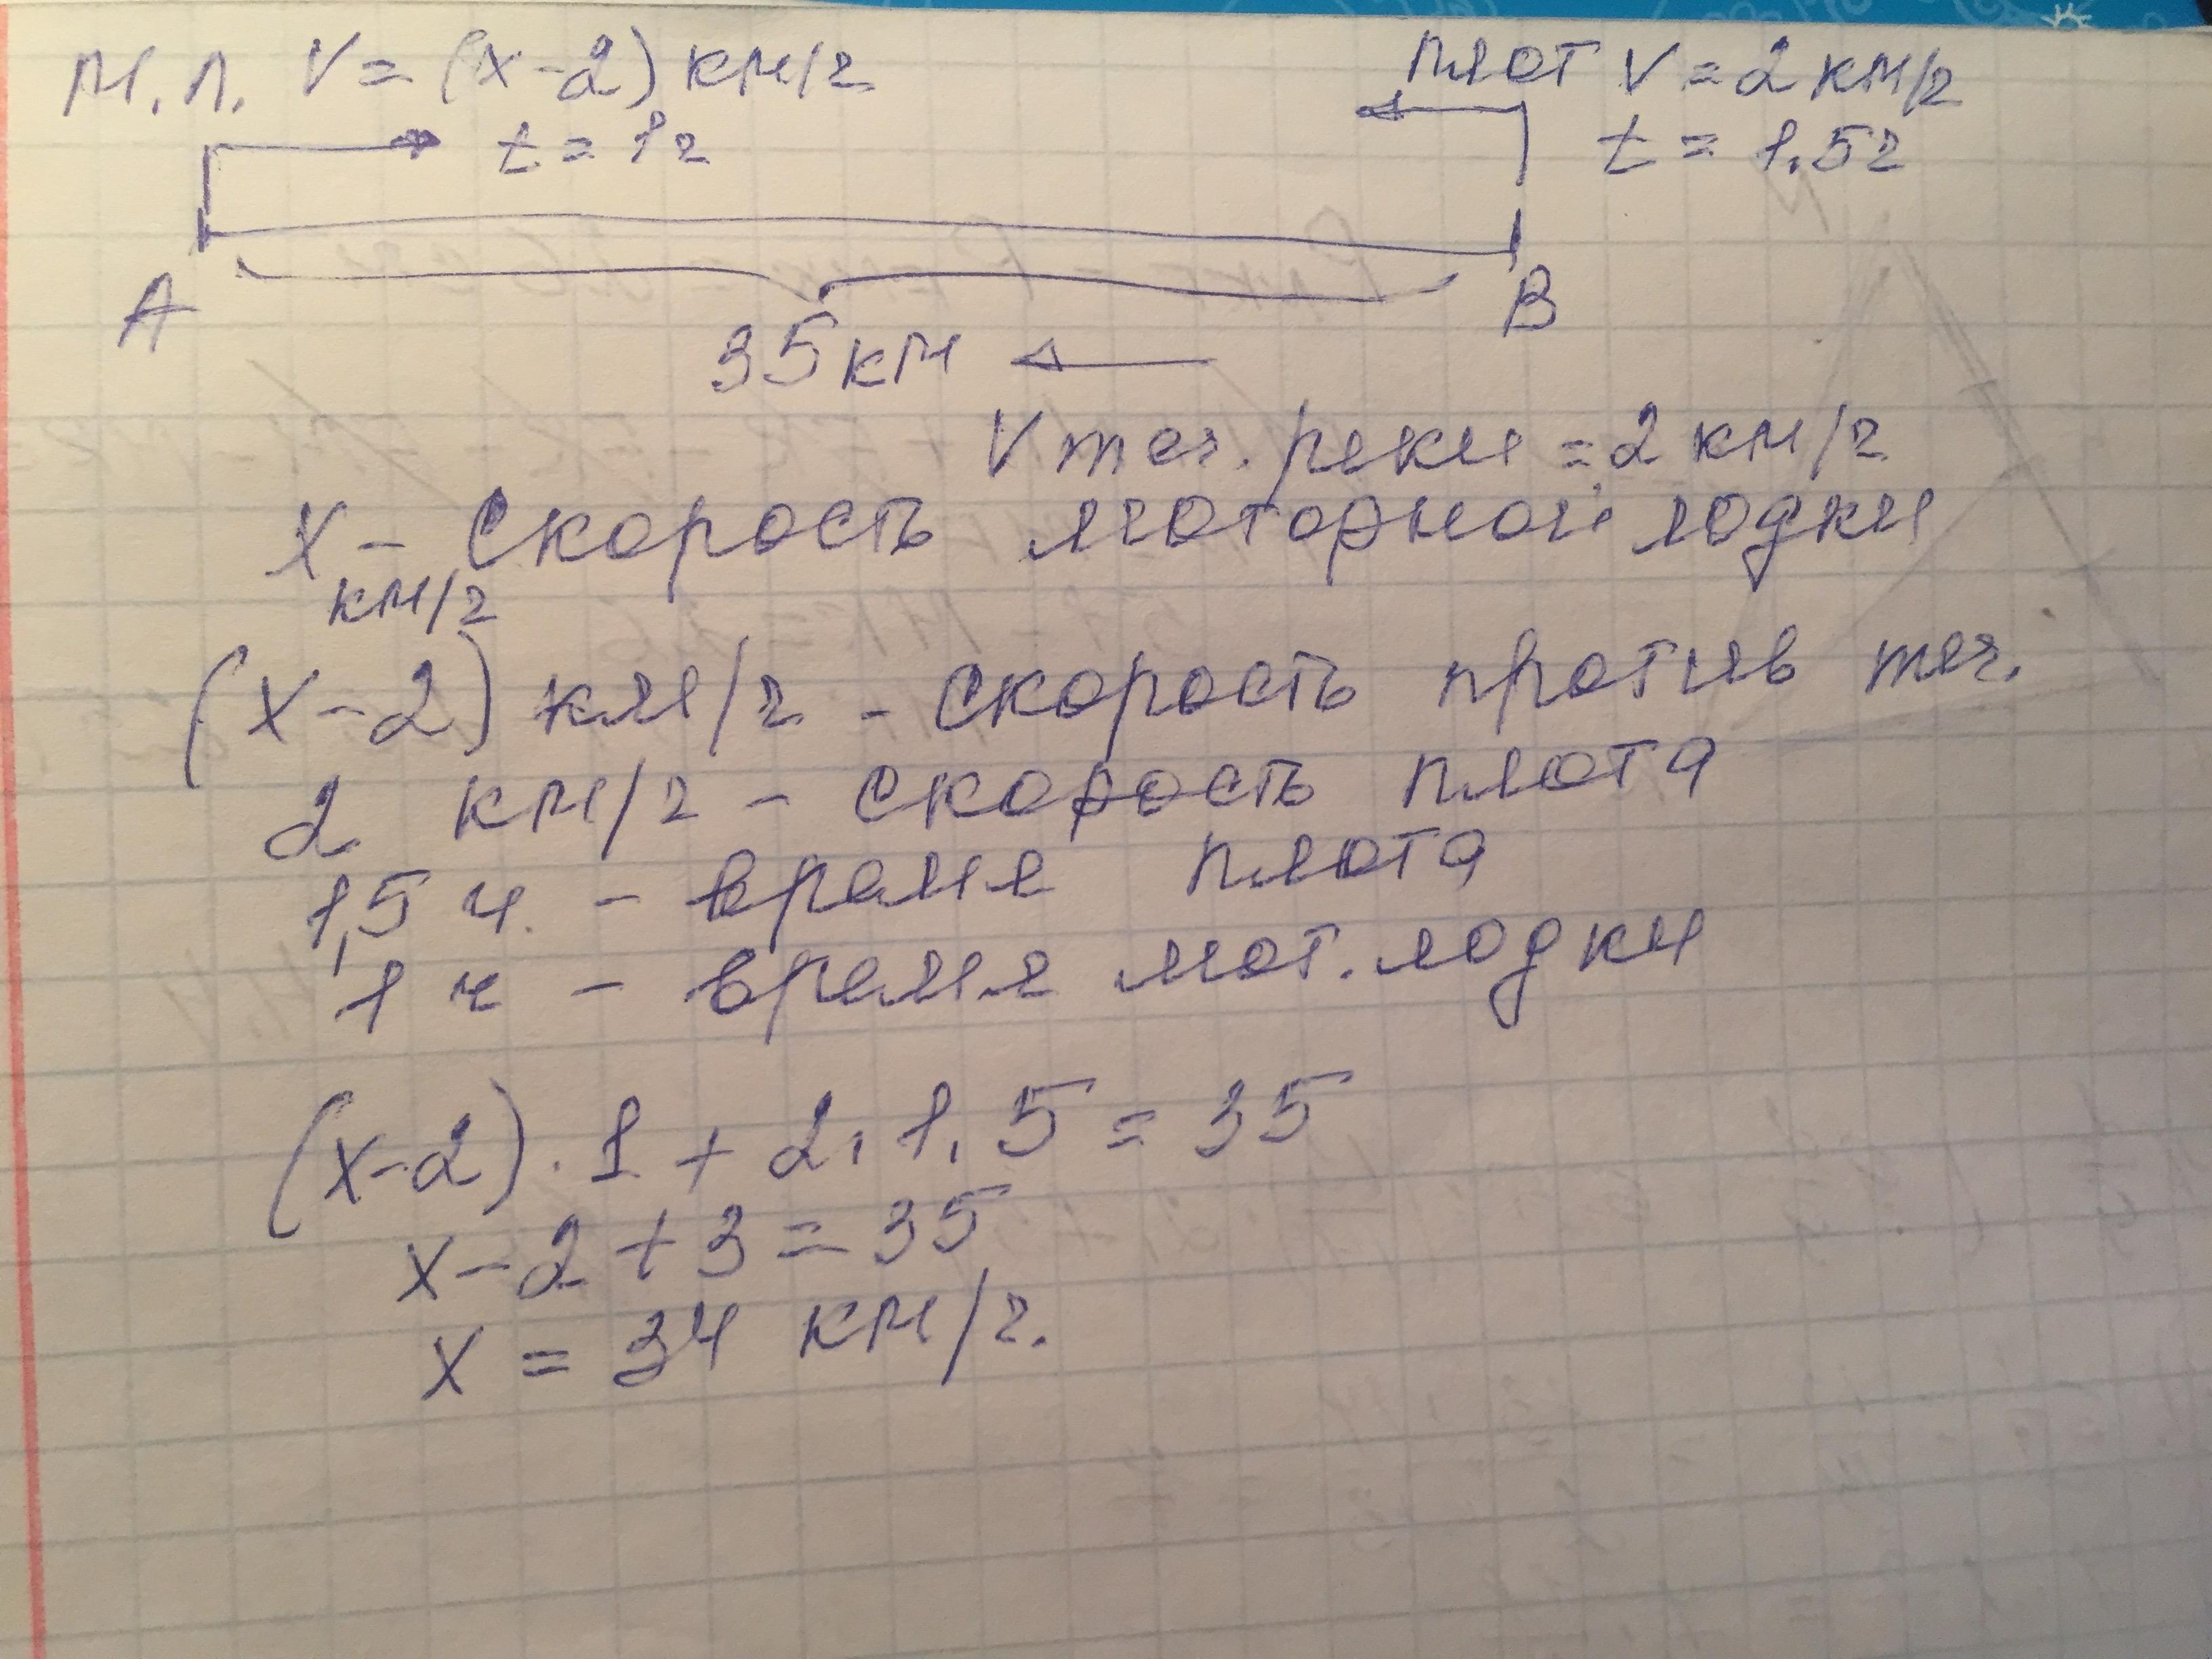 М.Л. V = (x-2) км/ч
t = 1ч
плот V = 2 км/ч
t = 1,5ч
A
B
35 км
V теч. реки = 2 км/ч
x - скорость моторной лодки
км/ч
(x-2) км/ч - скорость против теч.
2 км/ч - скорость плота
1,5 ч. - время плота
1 ч - время мот. лодки
(x-2) · 1 + 2 · 1,5 = 35
x - 2 + 3 = 35
x = 34 км/ч.